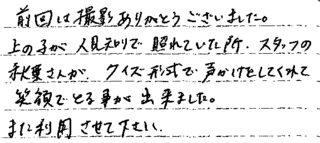 前回は撮影ありがとうございました。
上の子が人見知りで照れていた所、スタッフの
秋葉さんが、クイズ形式で声かけをしてくれて
笑顔でとる事が出来ました。
また利用させて下さい。